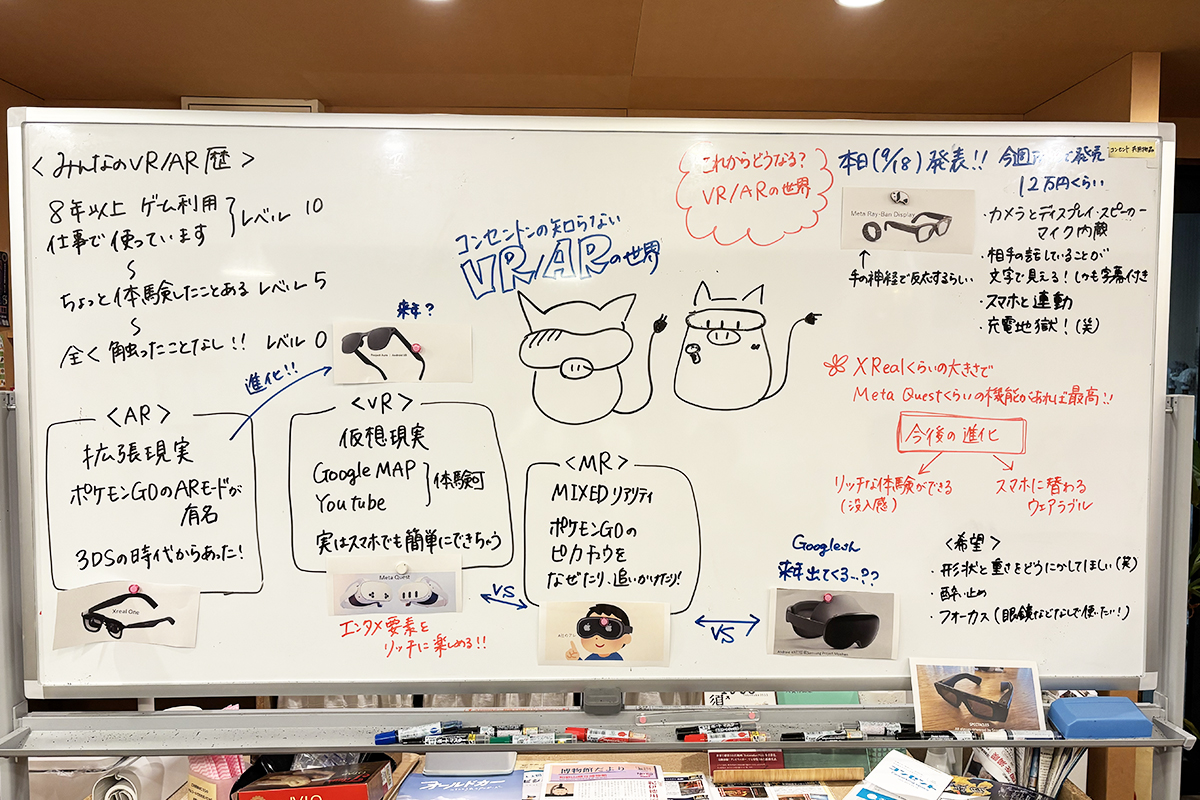 <みんなのVR/AR歴>
8年以上 ゲーム利用
仕事で使っています
レベル 10
〜
ちょっと体験したことある レベル 5
〜
全く触ったことなし!! レベル 0
コンセントンの知らない
VR/ARの世界
これからどうなる?
VR/ARの世界
本日(9/18)発表!!
発売
12万円くらい
コンセント
Meta Ray-Ban Display
↑
手の神経で反応するらしい
・カメラとディスプレイ・スピーカー
マイク内蔵
・相手の話していることが
文字で見える!しかも字幕付き
・スマホと連動
・充電地獄!(笑)
XRealくらいの大きさで
Meta Questくらいの機能があれば最高!!
今後の進化
リッチな体験ができる
(没入感)
スマホに替わる
ウェアラブル
<希望>
・形状と重さをどうにかしてほしい(笑)
・酔い止め
・フォーカス(眼鏡などなしで使いたい!)
進化!!
来年?
<AR>
拡張現実
ポケモンGOのARモードが
有名
3DSの時代からあった!
Xreal One
<VR>
仮想現実
Google MAP
Youtube
体験可
実はスマホでも簡単にできちゃう
Meta Quest
エンタメ要素を
リッチに楽しめる!!
VS
<MR>
MIXEDリアリティ
ポケモンGOの
ピカチュウを
なぜたり、追いかけたり!
VS
Googleさん
来年出てくる…??
SPECTACLES
博物館だより
オールカマー
コンセント
VIO